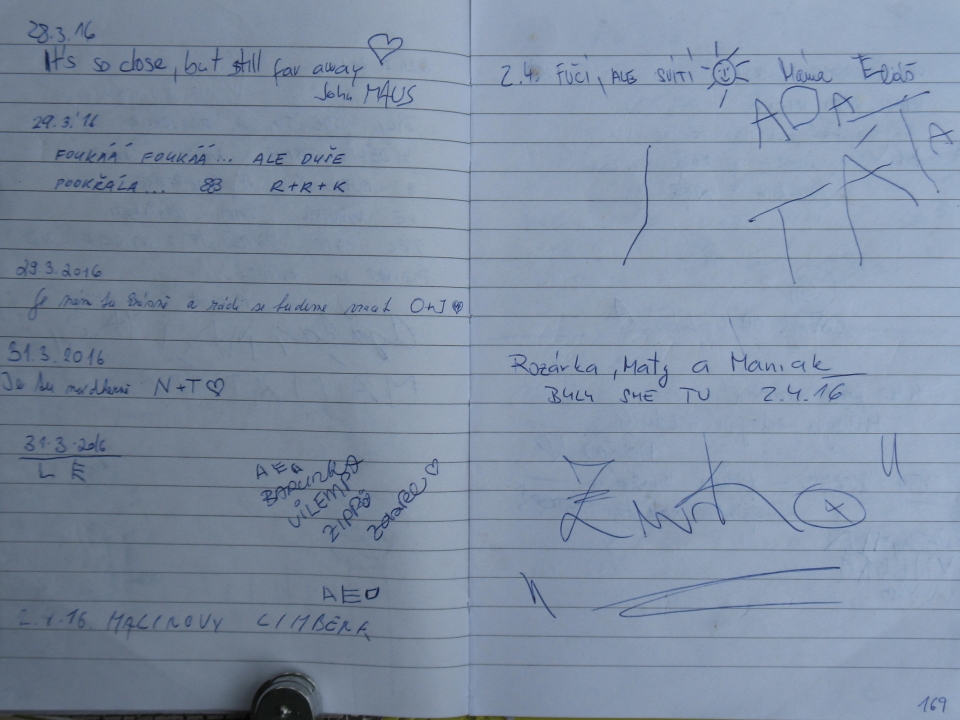 28.3.16
It's so close, but still far away ♡
John MAUS
29.3.'16
FOUKÁÁ FOUKÁÁ... ALE DUŠE
POOKŘÁLA... R+R+K
29.3.2016
Je nám tu a rádi se budeme vracet O+J ♡
31.3.2016
Je tu nádherně N+T ♡
31.3.2016
L E
A E
BARUNKA
VILEMPA
ZIPPÖ
♡
2.4.16. MALINOVY
2.4. FUČÍ, ALE SVÍTÍ Máma Eliáš
ADA
TÁTA
Rozárka, Maty a Maniak
BYLY SME TU 2.4.16
169